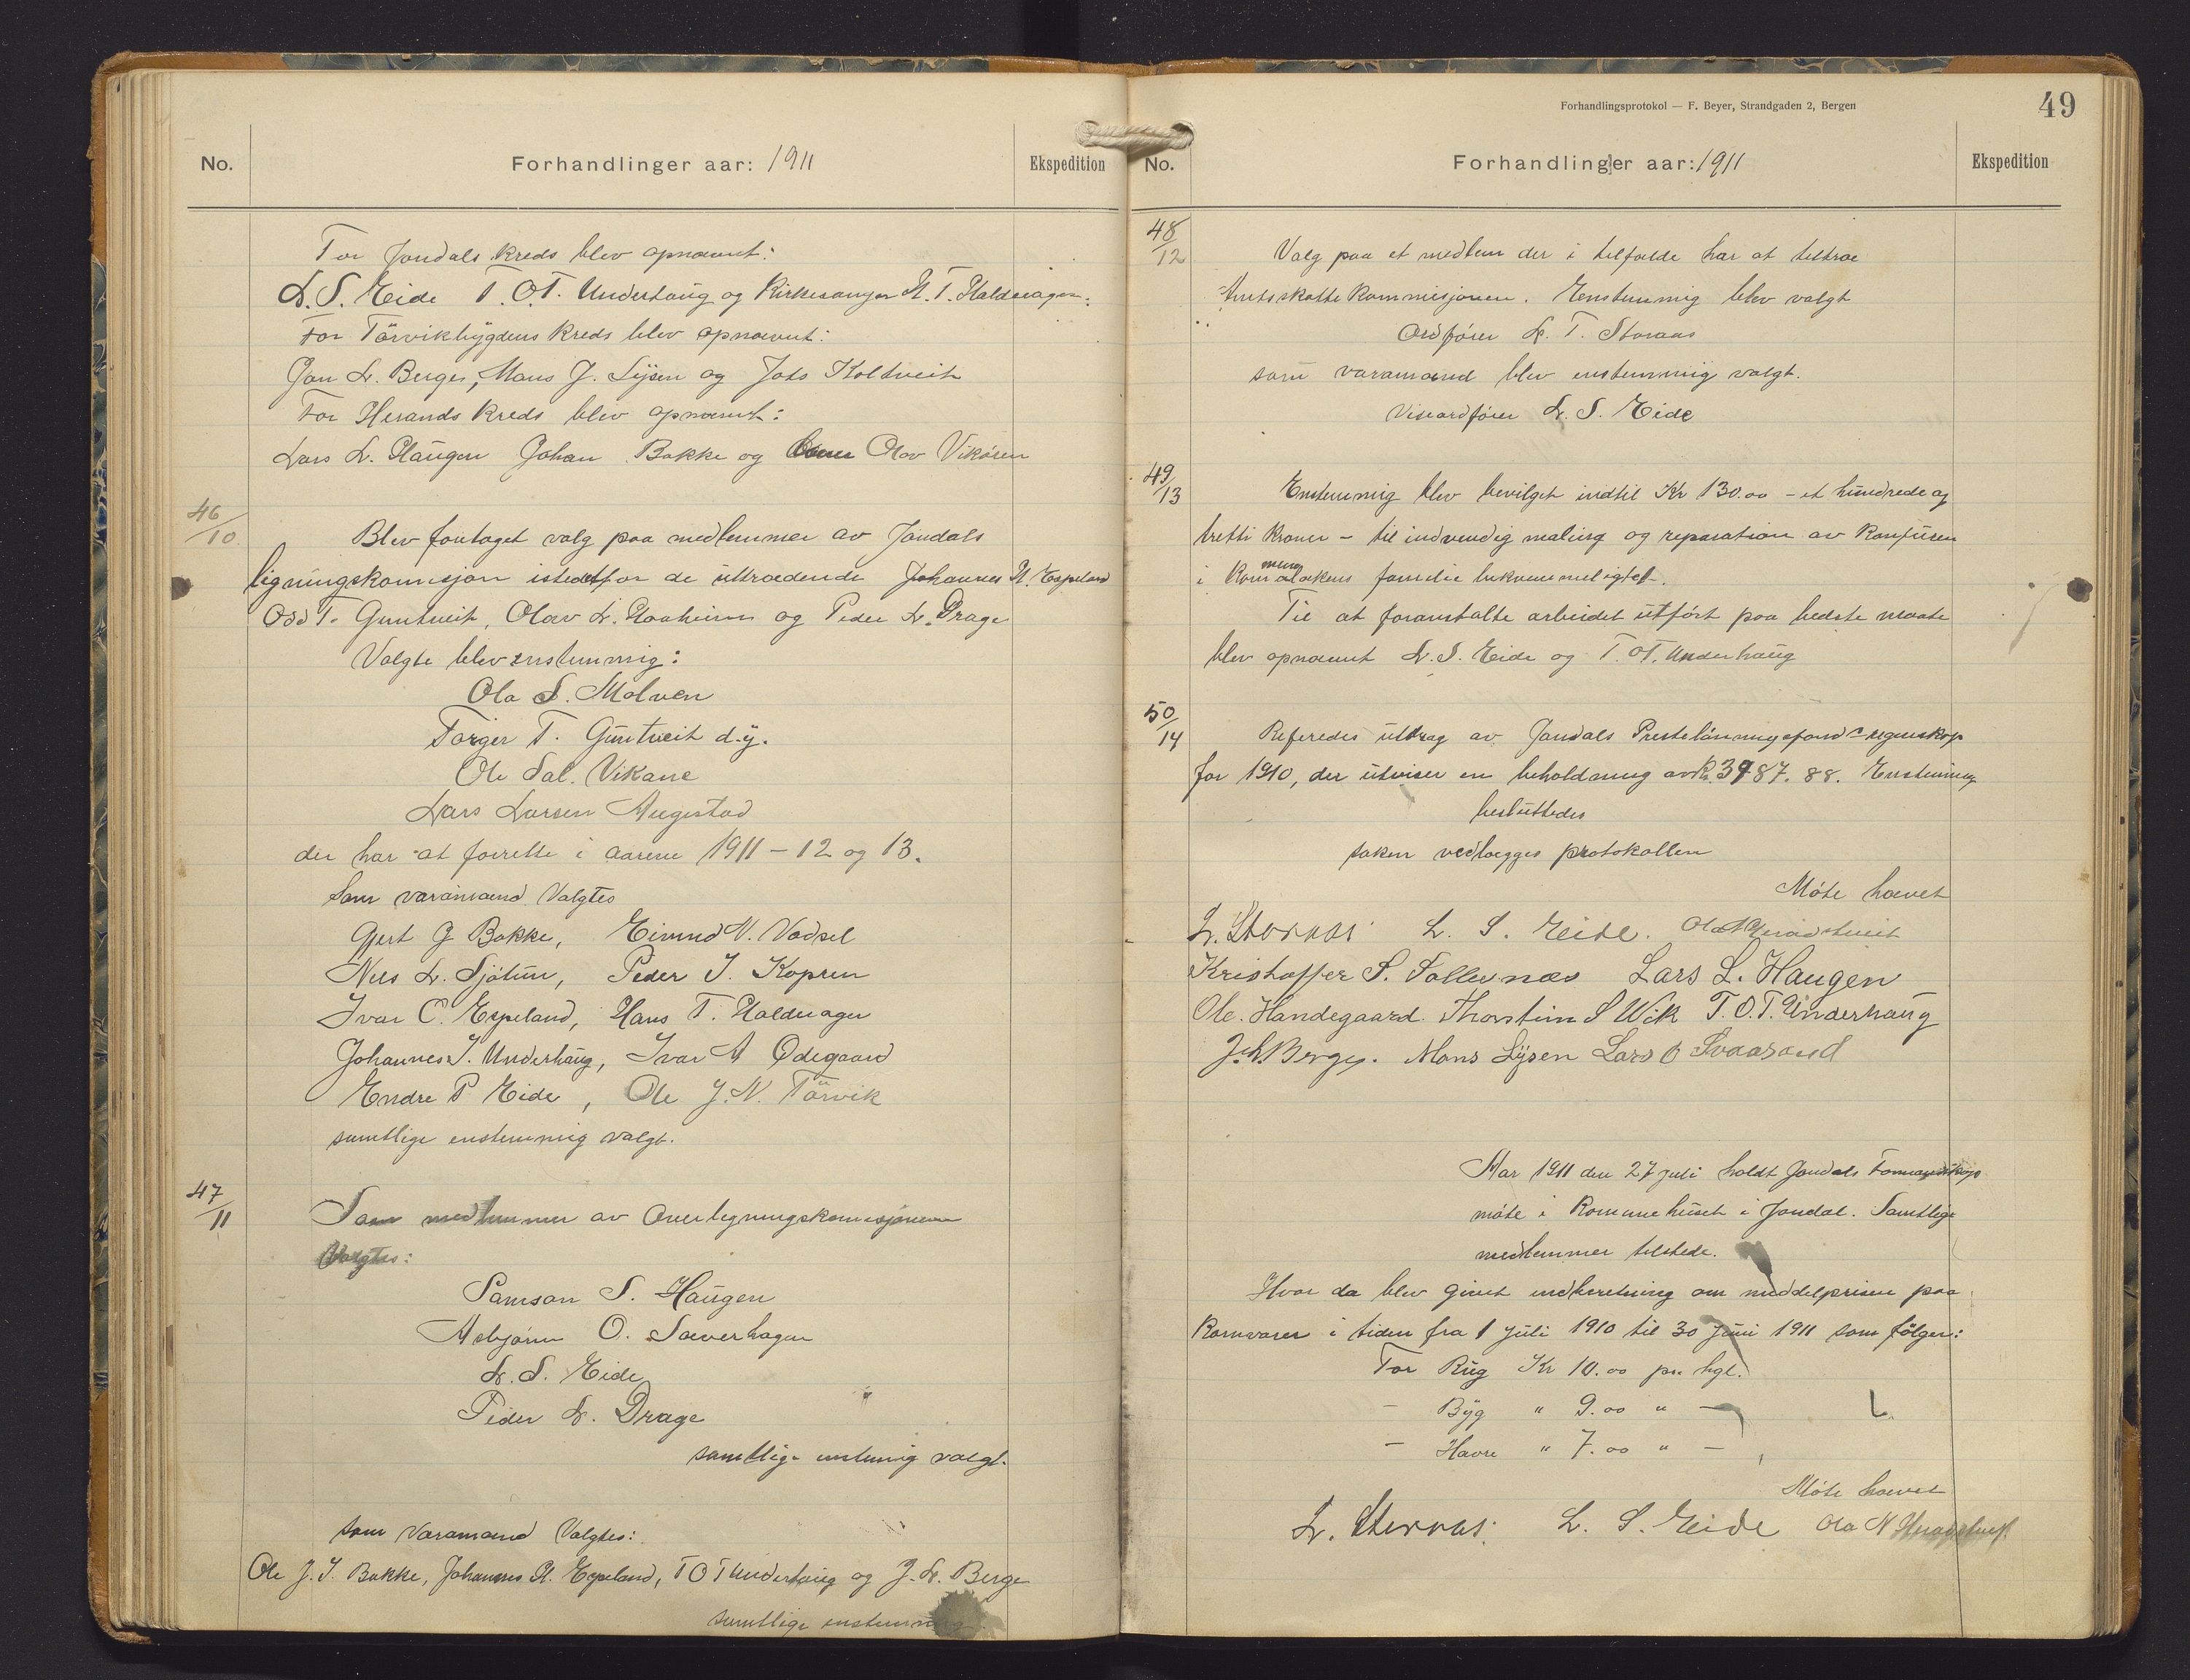 No.
Forhandlinger aar: 1911
Ekspedition
For Jondals kreds blev opnævnt:
L. S. Eide T. O. T. Underhaug og Kirkesanger H. T. Haldenager.
For Törvikbygdens kreds blev opnævnt:
Jon L. Berge, Mons J. Lysen og Koldtveit
For Herands kreds blev opnævnt:
Lars L. Haugen Johan Bakke og Olav Vikören
46/10
Blev foretaget valg paa medlemmer av Jondals
ligningskomisjon istedetfor de uttrædende Johannes H. Espeland
Odd T. Guntveit, Olav L. og Peder L. Drage
Valgte blev enstemmig:
Ola S. Molven
Torger T. Guntveit d.y.
Ole Sal. Vikane
Lars Larsen Augestad
der har at forrette i aarene 1911 - 12 og 13.
Som varamænd Valgtes
Gjert G Bakke, Eivind N. Vadsel
Nils L. Sjötun, Peder J. Kopren
Ivar C. Espeland, Hans T. Haldenager
Johannes J. Underhaug, Ivar A Ödegaard
Endre P Eide, Ole J. N. Törvik
samtlige enstemmig valgt.
47/11
Som medlemmer av Overligningskomisjonen
Valgtes:
Samson S. Haugen
Asbjörn O. Sæverhagen
L. S. Eide
Peder L. Drage
samtlige enstemig valgt.
som Varamænd Valgtes:
Ole J. J. Bakke, Johannes H. Espeland, T O T Underhaug og J. L. Berge
samtlige enstemmig
Forhandlingsprotokol — F. Beyer, Strandgaden 2, Bergen
49
No.
Forhandlinger aar: 1911
Ekspedition
48/12
Valg paa et medlem der i tilfælde har at tiltræ
Amtsskattekommisjonen. Enstemmig blev valgt
Ordförer L. T. Storaas
som varamænd blev enstemmig valgt.
Viseordförer L. S. Eide
49/13
Enstemmig blev bevilget indtil Kr 130.00 - et hundrede og
tretti kroner - til indvendig maling og reparation av
i familie bekvemmeligtet.
Til at foranstalte arbeidet utfört paa bedste maate
blev opnævnt L. S. Eide og T. O T. Underhaug
50/14
Referedes utdrag av Jondals Prestelönningsfond regnskap
for 1910, der utviser en beholdning av Kr. 3987.88. Enstemmig
besluttedes
saken vedlægges protokollen
Möte hævet
L. Storaas L. S. Eide.
Kristoffer S. Sollesnæs Lars L. Haugen
Ole. Handegaard. Thorstein S Wik T. O. T. Underhaug
J. L. Berge. Mons Lysen Lars O Svaasand
Aar 1911 den 27 juli holdt Jondals Formandskap
möte i Kommunehuset i Jondal. Samtlige
medlemmer tilstede.
Hvor da blev givet indberetning om middelprisen paa
Kornvarer i tiden fra 1 juli 1910 til 30 juni 1911 som fölger:
For Rug Kr 10.00 pr. hgl.
- Byg " 9.00 " -
- Havre " 7.00 " -
Möte hævet
L. Storaas. L. S. Eide Ola N